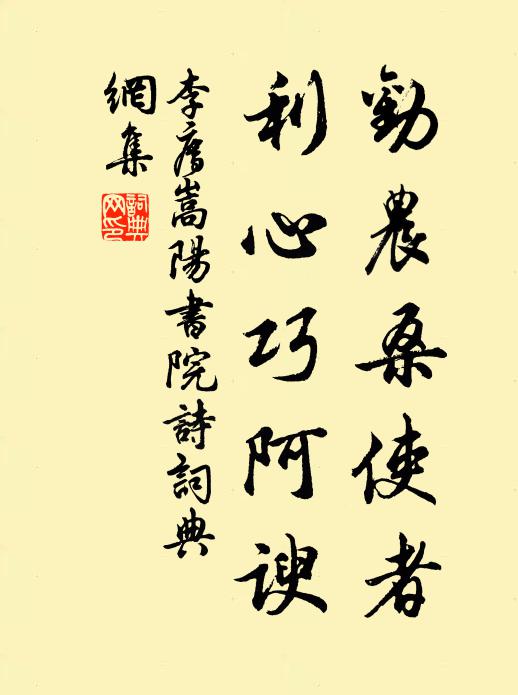 勸農桑使者
利心巧阿諛
李廌嵩陽書院詩詞典
網集
詞典
网印